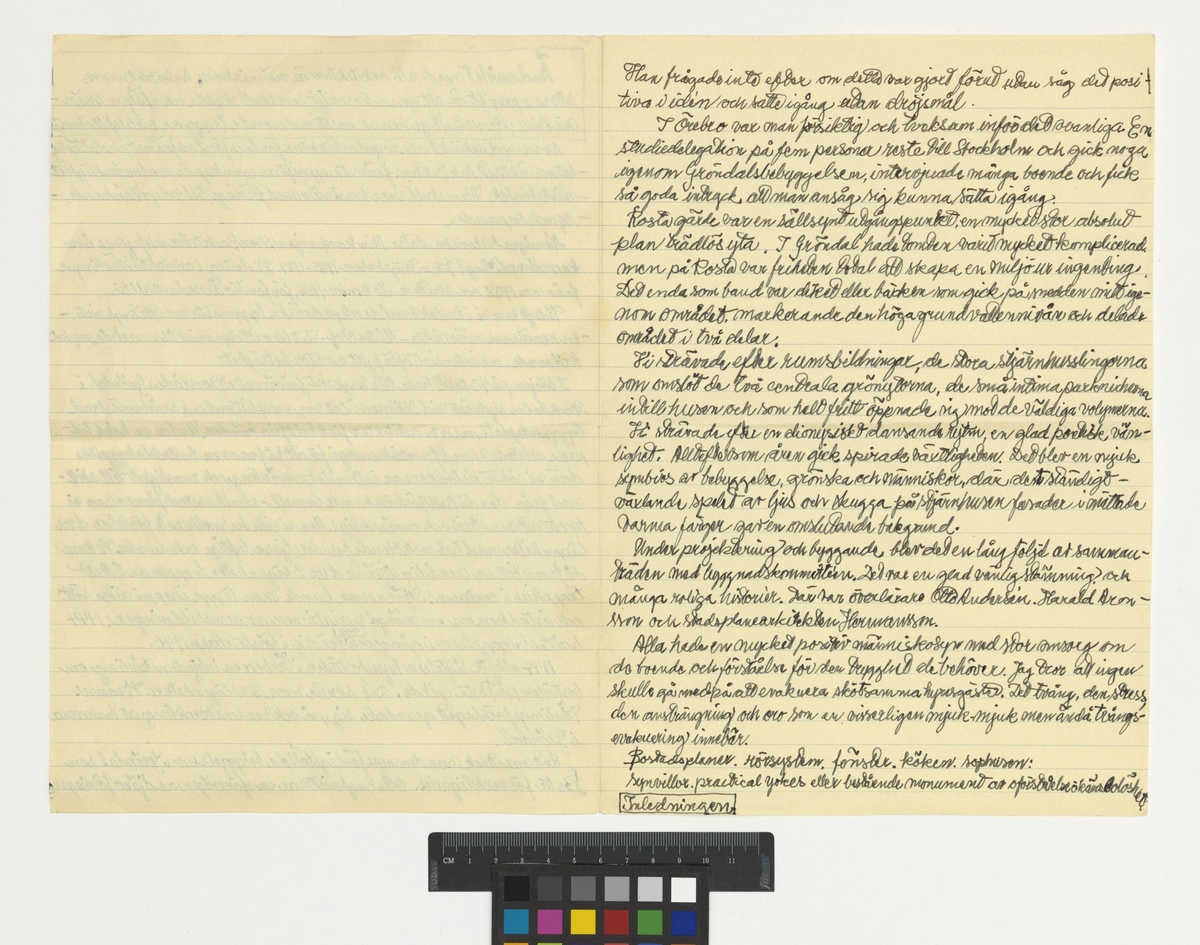 Han frågade inte efter om detta var gjort förut utan såg det posi-
tiva i iden och satte igång utan dröjsmål.
I Örebro var man försiktig och tveksam inför det ovanliga. En
studiedelegation på fem personer reste till Stockholm och gick noga
igenom Gröndalsbebyggelsen, intervjuade många boende och fick
så goda intryck att man ansåg sig kunna sätta igång.
Rosta gärde var en sällsynt utgångspunkt, en mycket stor absolut
plan trädlös yta. I Gröndal hade tomten varit mycket komplicerad.
men på Rosta var friheten total att skapa en miljö ur ingenting.
Det enda som band var diket eller bäcken som gick på medden mitt ige-
nom området, markerande den höga grundvattennivån och delade
området i två delar.
Vi strävade efter rumsbildningar, de stora stjärnhusslingorna
som omslöt de två centrala grönytorna, de små intima parknischerna
intill husen och som helt fritt öppnade sig mot de väldiga volymerna.
Vi strävade efter en dionysiskt dansande rytm, en glad poetisk vän-
lighet. Allteftersom åren gick spirade växtligheten. Det blev en mjuk
symbios av bebyggelse, grönska och människor, där det ständigt -
växlande spelet av ljus och skugga på stjärnhusen fasader i mättade
varma färger gav en omslutande bakgrund.
Under projektering och byggande blev det en lång följd av samman-
träden med byggnadskommittéen. Det var en glad vänlig stämning och
många roliga historier. Där var överlärare Otto Andersén. Harald Aron-
sson och stadsplanearkitekten Hermansson.
Alla hade en mycket positiv människosyn med stor omsorg om
de boende och förståelse för den trygghet de behöver. Jag tror att ingen
skulle gå med på att evakuera skötsamma hyresgäster. Det tvång, den stress,
den ansträngning och oro som en visserligen mjuk-mjuk men ändå tvångs-
evakuering innebär.
Bostadsplaner. rörsystem. fönster. köken. sophusen:
synvillor. practical yokes eller bestående monument av
Inledningen